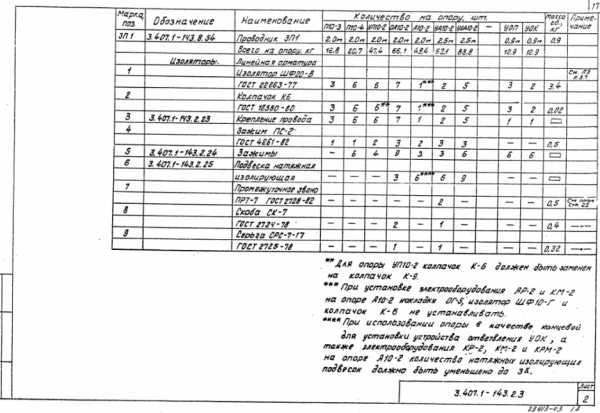 17
Марка, поз Обозначение Наименование Количество на опору, шт. Масса ед., кг Приме-чание
П10-3 П10-4 УП10-2 УА10-2 А10-2 — УОП УОК
ЗП1 3.407.1-143.8.54 Проводник ЗП1 2,0м 2,0м 2,0м 2,0м 2,0м 2,5м 2,5м 0,9м 0,9м 0,9
Всего на опору, кг
Изоляторы. Линейная арматура
1 Изолятор ШФ10-В
ГОСТ 22863-77 3 6 6 7 1*** 2 5 3 2 3,4
2 Колпачок К6
ГОСТ 18380-80 3 6 6** 7 1*** 2 5 3 2 0,02
3 3.407.1-143.2.23 Крепление провода 3 6 6 7 1 2 5 1 1
4 Зажим ПС-2
ГОСТ 4261-82 1 1 2 3 2 3 3 — — 0,5
5 3.407.1-143.2.24 Зажимы — 6 4 9 3 3 6 6 6
6 3.407.1-143.2.25 Подвеска натяжная
изолирующая — — — 3 6**** 6 9 — —
7 Промежуточное звено
ПРТ-7 ГОСТ 2728-82 — — — — — 2 — — 0,5
8 Скоба СК-7
ГОСТ 2724-78 — — — 2 — 1 — — 0,4
9 Серьга СРС-7-17
ГОСТ 2725-78 — — — 1 — 1 — — 0,32
** Для опоры УП10-2 колпачок К-6 должен быть заменен
на колпачок К-9.
*** При установке электрооборудования АР-2 и КМ-2
на опоре А10-2 накладки ОГ-5, изолятор ШФ10-Г и
колпачок К-6 не устанавливать.
**** При использовании опоры в качестве концевой
для установки устройства ответвления УОК, а
также электрооборудования КР-2, КМ-2 и КРМ-2
на опоре А10-2 количество натяжных изолирующих
подвесок должно быть уменьшено до 3х.
3.407.1-143.2.3
Лист
2